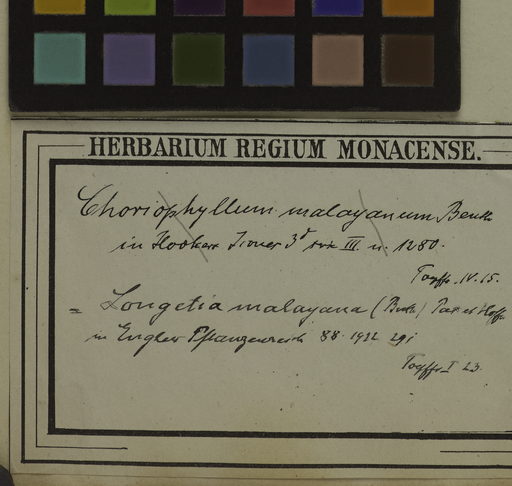 HERBARIUM REGIUM MONACENSE.
Choriophyllum malayanum Benth
in Hooker Icones 3d III. n. 1280.
IV. 15.
= Longetia malayana (Benth) Pax et Hoffm
in Engler Pflanzenreich 88. 1922 291
I 23